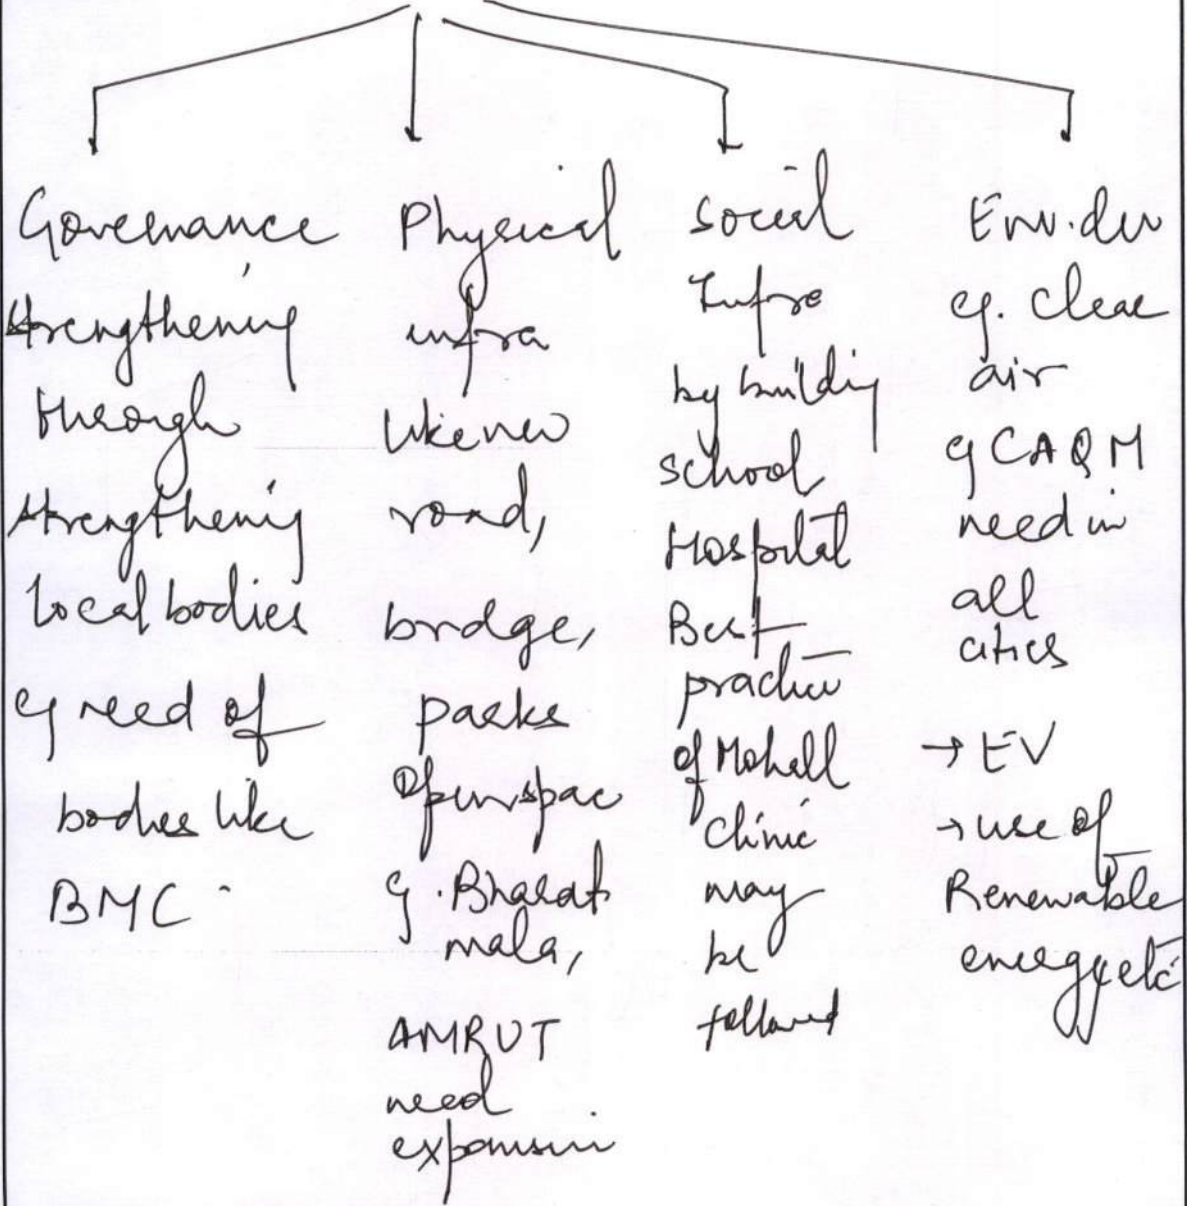 Governance
strengthening
through
strengthening
local bodies
eg need of
bodies like
BMC
Physical
infra
like new
road,
bridge,
parks
Openspac
eg. Bharat
mala,
AMRUT
need
expansion
Social
Infra
by building
school,
Hospital
Best
practice
of Mohall
Clinic
may
be
followed
Env. dev
eg. Clear
air
eg CAQM
need in
all
cities
→ EV
→ use of
Renewable
energy etc